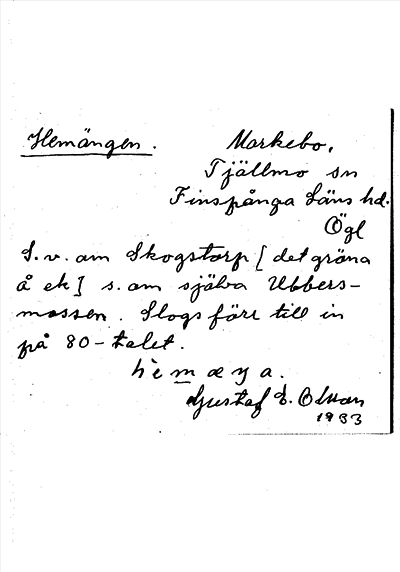 Hemängen. Markebo,
Tjällmo sn
Finspånga Läns hd.
Ögl
S.v. om Skogstorp [det gröna
å ek] s. om själva Ubbers-
mossen. Slogs förr till in
på 80-talet.
hèmæŋa.
Gustaf E. Olsson
1933